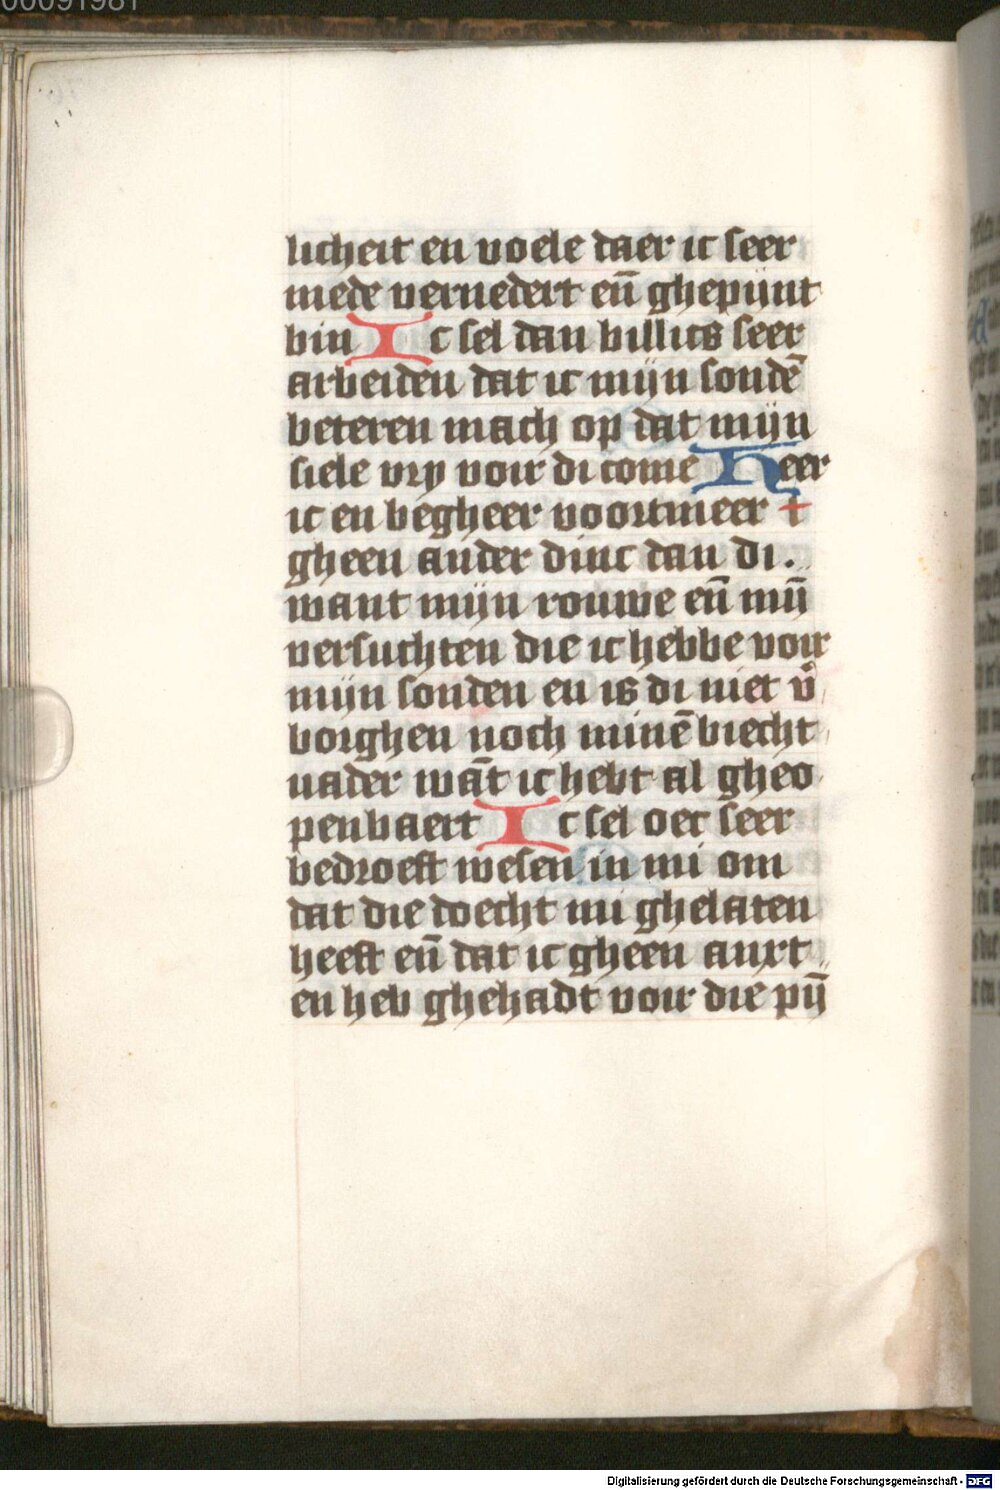 00091981
licheit en voele daer ic seer
mede vernedert en̄ ghepijnt
bin Ic sel dan billics seer
arbeiden dat ic mijn sondē
beteren mach op dat mijn
siele vry voir di come Heer
ic en begheer voortmeer
gheen ander dinc dan di.
want mijn rouwe en̄ mij̄
versuchten die ic hebbe voir
mijn sonden en is di niet v̄
borghen noch minē biecht
vader wāt ic hebt al gheo
penbaert Ic sel oec seer
bedroeft wesen in mi om
dat die doecht mi ghelaten
heeft en̄ dat ic gheen anxt
en heb ghehadt voir die pij̄
Digitalisierung gefördert durch die Deutsche Forschungsgemeinschaft - DFG